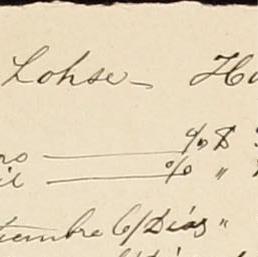 Lohse - Ha
ro — % $
il — % "
iembre 6/Días "